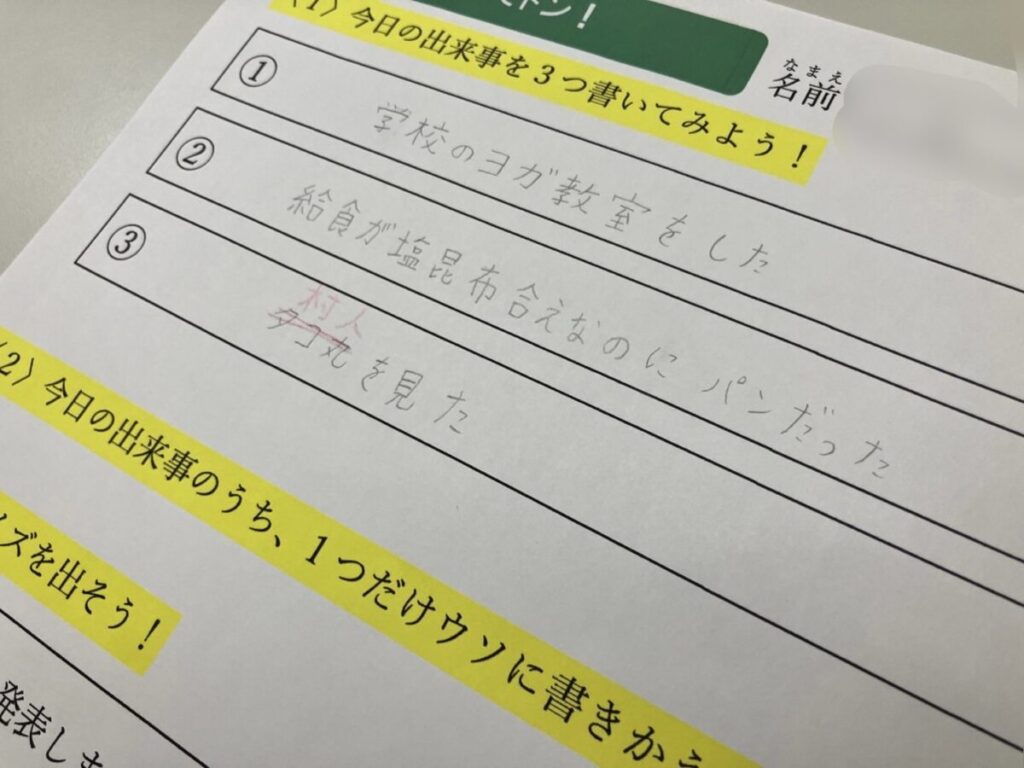 トン!
〈1〉今日の出来事を3つ書いてみよう!
なまえ
名前
① 学校のヨガ教室をした
② 給食が塩昆布合えなのにパンだった
村人
③ タコ丸を見た
〈2〉今日の出来事のうち、1つだけウソに書きかえ
イズを出そう!
発表しま